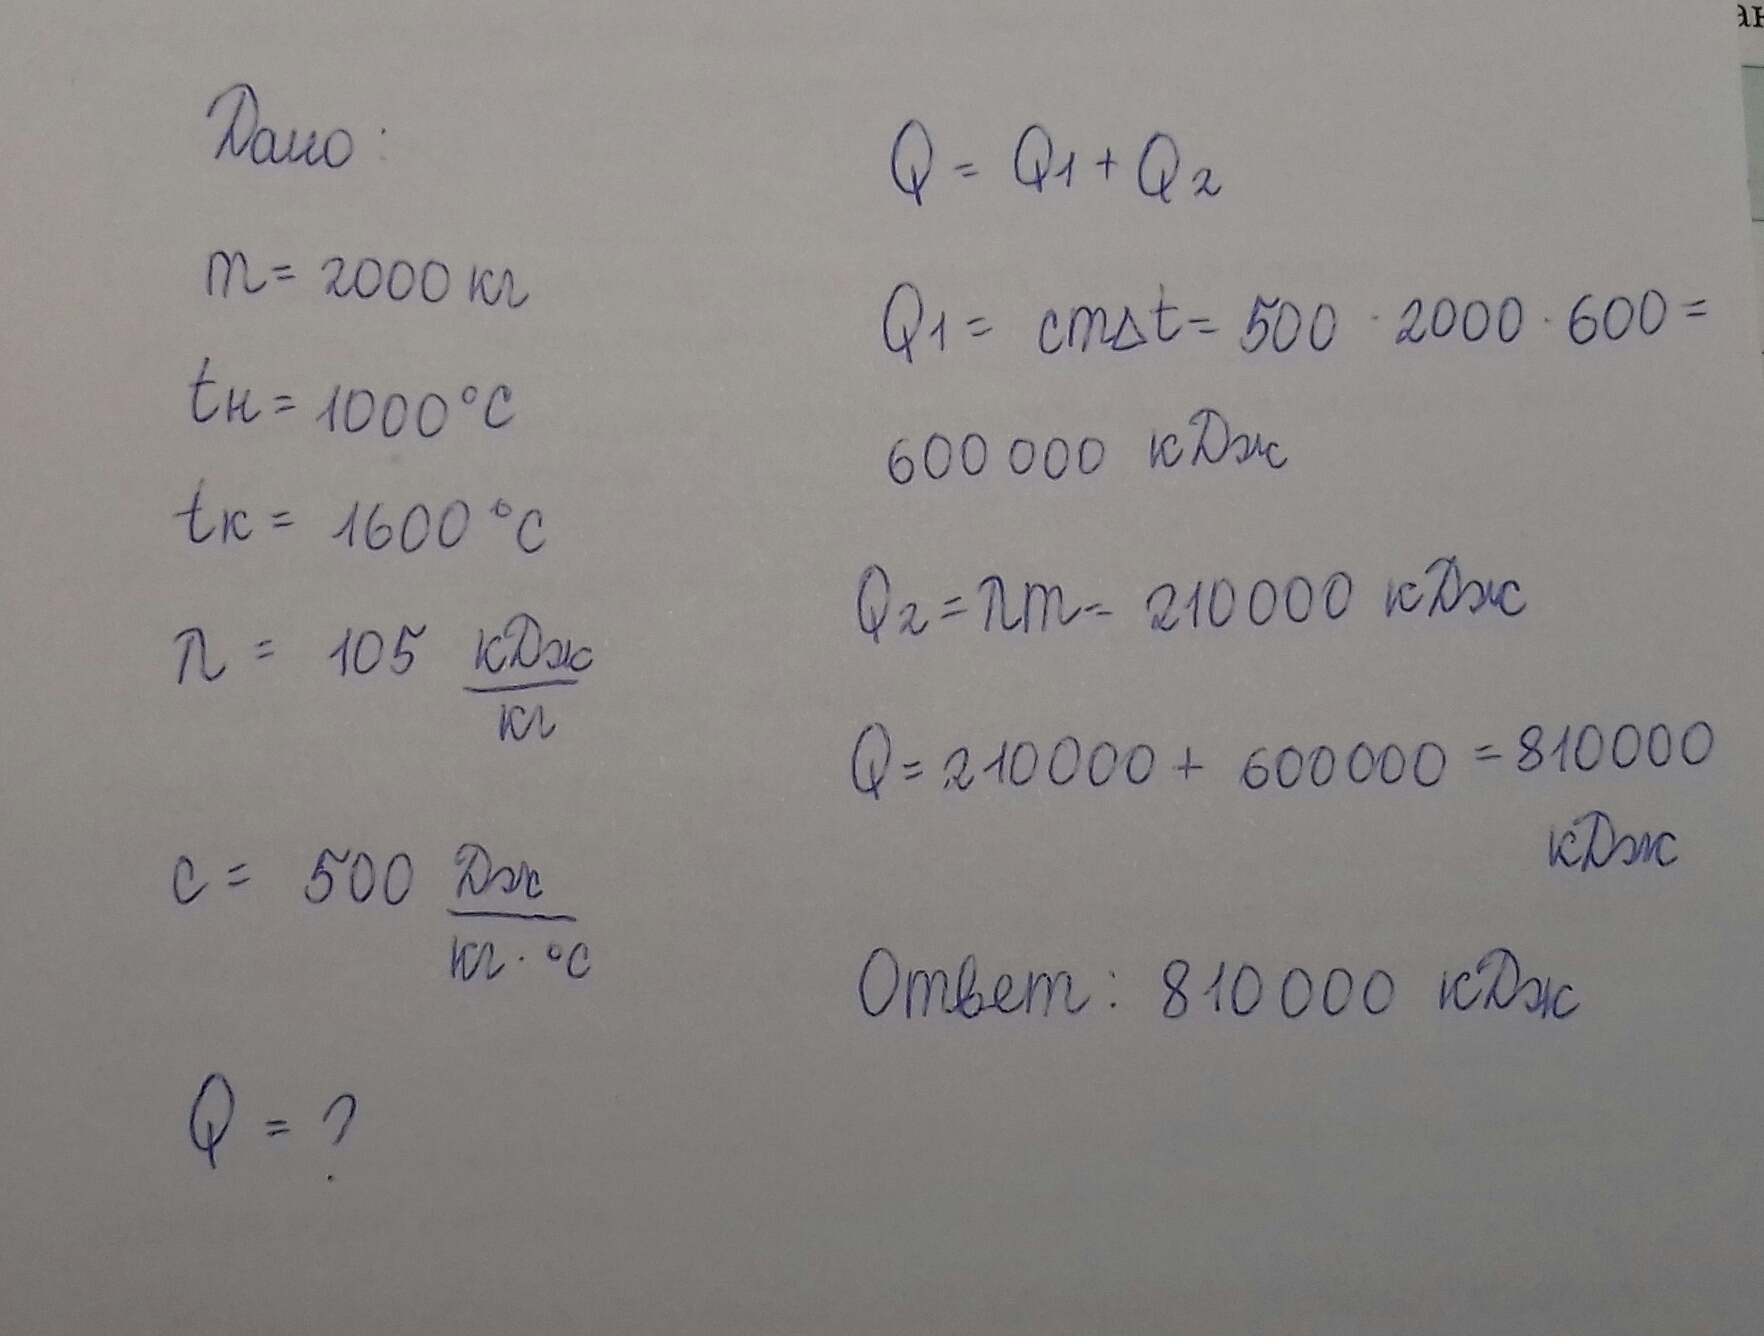 Дано:
m = 2000 кг
tн = 1000 °C
tк = 1600 °C
λ = 105 кДж/кг
c = 500 Дж/кг · °C
Q = ?
Q = Q1 + Q2
Q1 = cmΔt = 500 · 2000 · 600 =
600 000 кДж
Q2 = λm = 210000 кДж
Q = 210000 + 600000 = 810000
кДж
Ответ: 810000 кДж